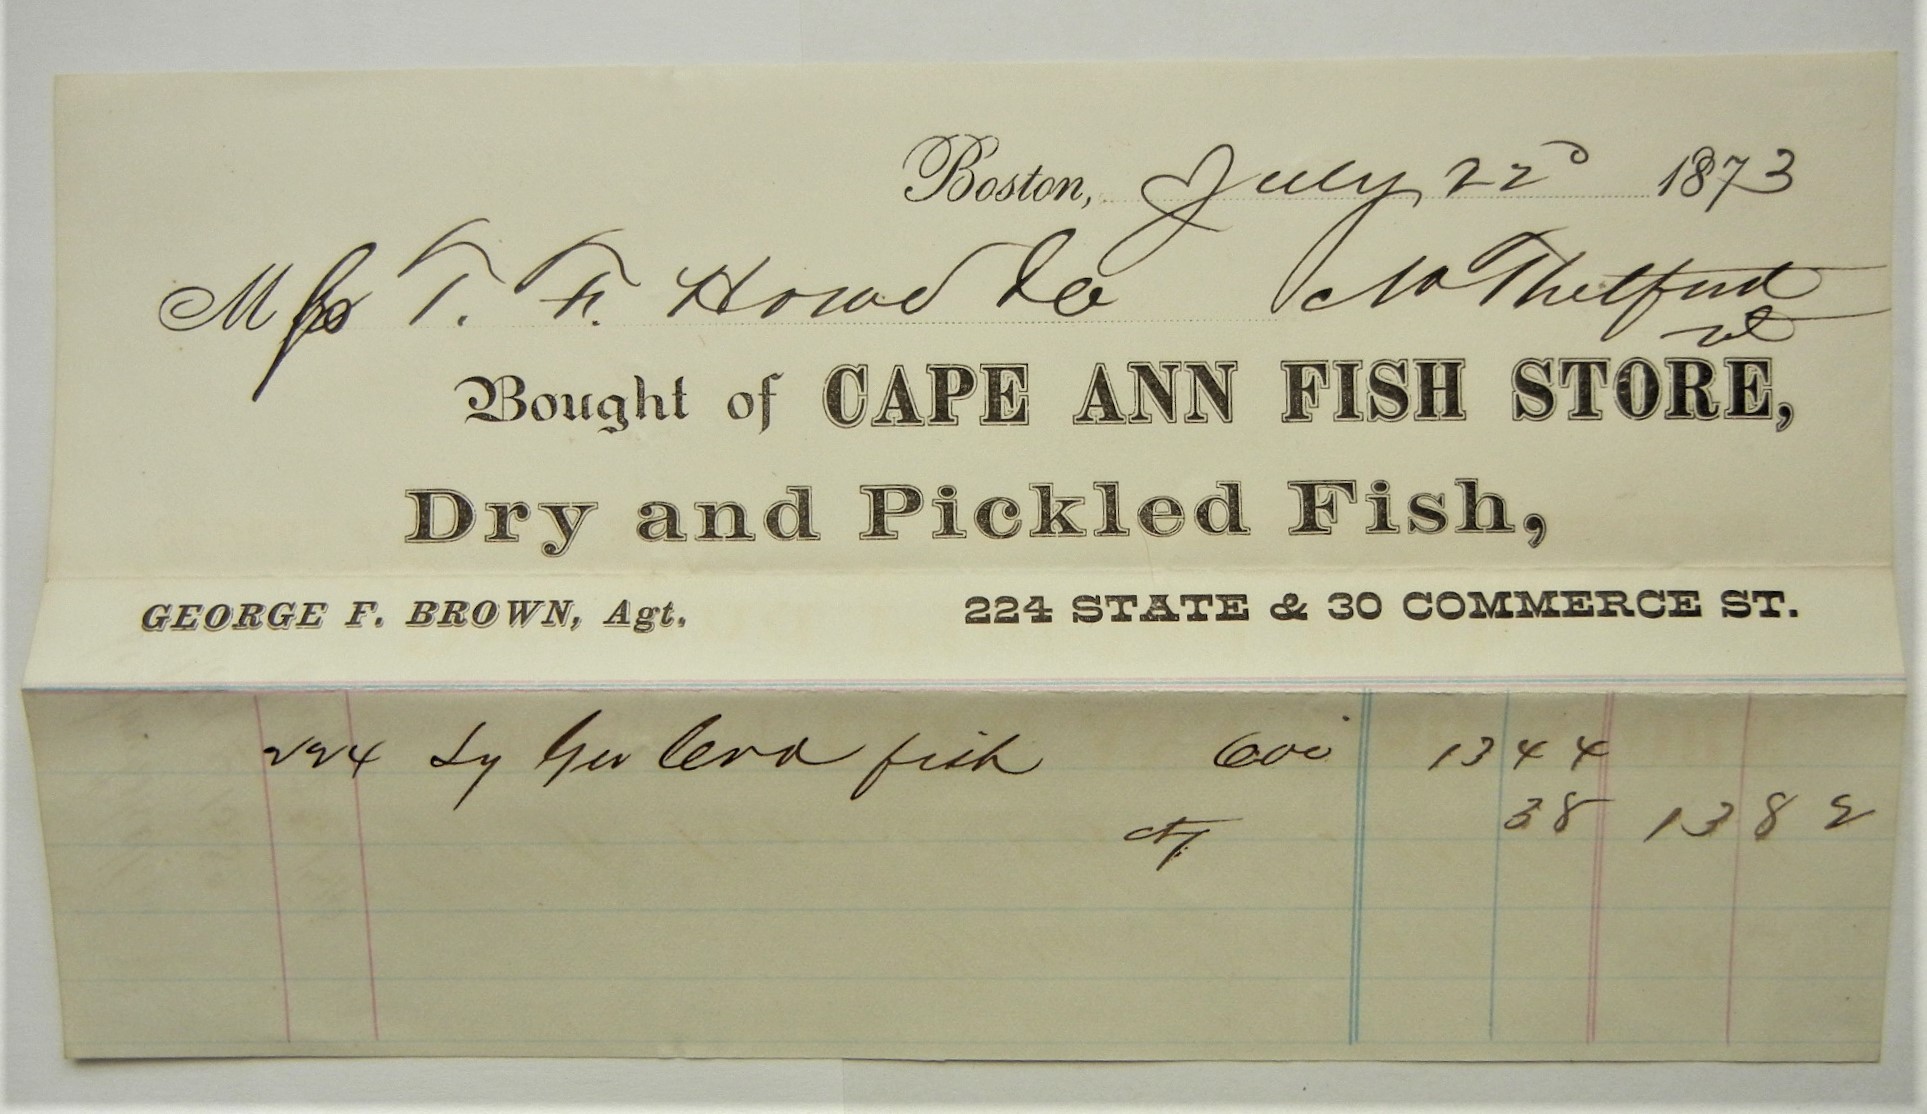 Boston, July 22d 1873
Mess T. F. Howe & Co No Thetford
Vt
Bought of CAPE ANN FISH STORE,
Dry and Pickled Fish,
GEORGE F. BROWN, Agt. 224 STATE & 30 COMMERCE ST.
224 Lg Geo Cod fish 600 13 44
38 13 82